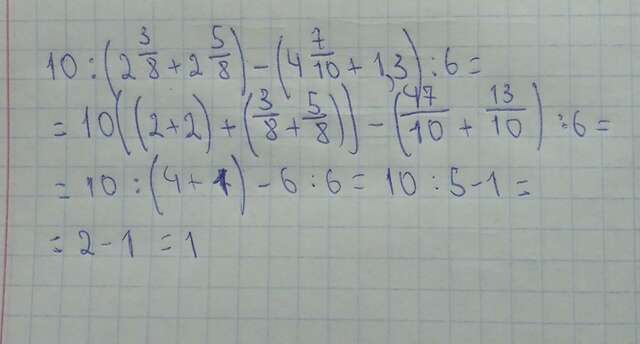 10 : (2 3/8 + 2 5/8) - (4 7/10 + 1,3) : 6 =
= 10 ((2+2) + (3/8 + 5/8)) - (47/10 + 13/10) : 6 =
= 10 : (4+1) - 6 : 6 = 10 : 5 - 1 =
= 2 - 1 = 1